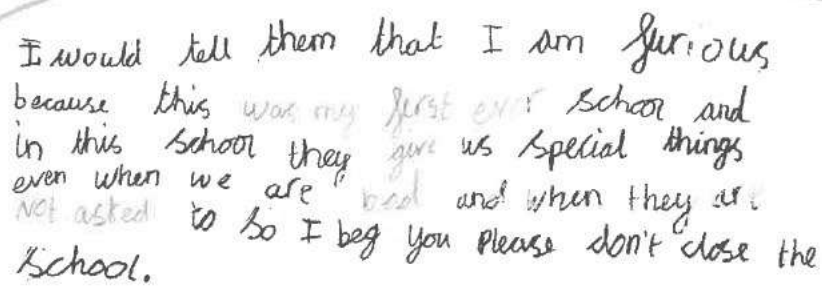 I would tell them that I am furious
because this was my first ever school and
in this school they give us special things
even when we are bad and when they are
Not asked to so I beg you please don't close the
school.